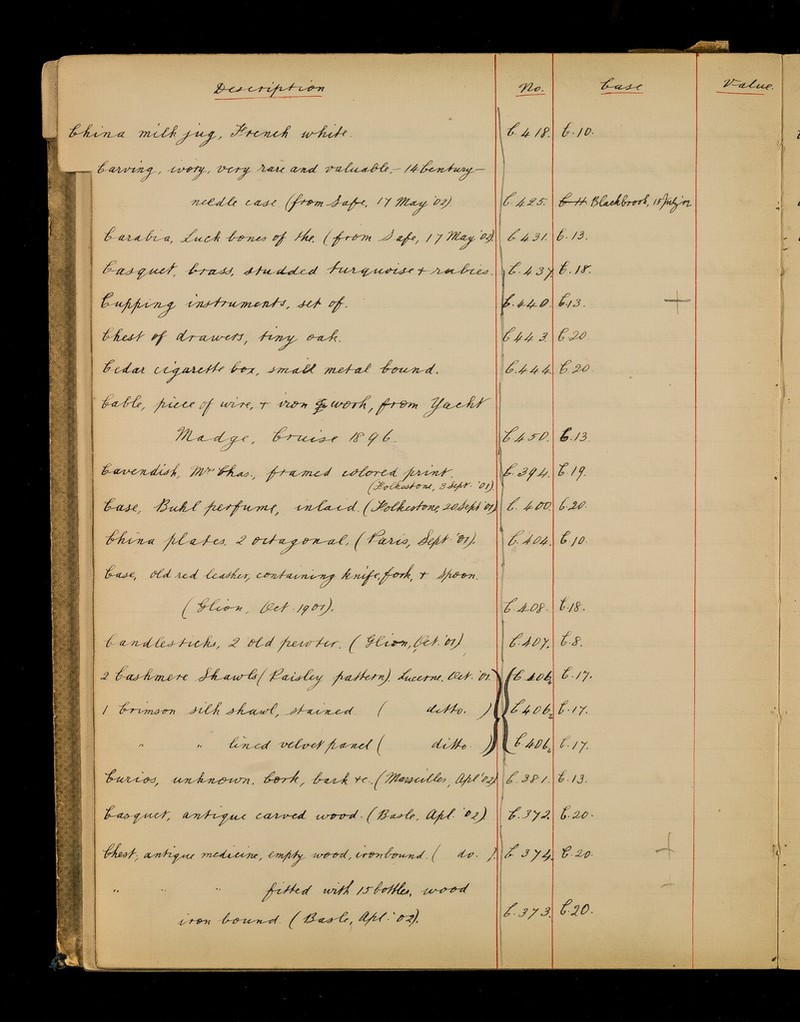 Description No. Case Value.
China milk jug, French white. C 418. C.10.
Carving, ivory, very rare and valuable,- 14 Century-
needle case (from Safe, 17 May '02) C 425. C 11. Blackbrook, 18 July '02
Carabia, Luck bones of the. (from Safe, 17 May '02). C 431. C.13.
Casquet, brass, studded turquoise + rubies. C.437. C.18.
Cupping instruments, set of. C.440. C.13. +
Chest of drawers, tiny oak. C 443. C 20
Cedar cigarette box, small metal bound. C.444. C 20
Cable, piece of wire, + iron work, from Yacht
Madge, Cruise 1896. C 450. C.13.
Cavendish, Mrs Chas., framed colored print. C.394. C 19.
(Folkestone, 3 Sept. '01)
Case, Buhl perfume, inlaid. (Folkestone, 20 Sept '01) C. 400. C.20.
China plates, 2 octagonal, (Paris, Sept '01). C.404. C 10
Case, old red leather, containing knife, fork, + spoon.
(Glion, Oct 1901). C.408. C.18.
Candlesticks, 2 old pewter. (Glion, Oct. '01) C.407. C.8.
2 Cashmere Shawls (Paisley pattern). Lucerne, Oct. '01 C 406, C.17.
1 Crimson silk shawl, stained ( ditto. ) C 406, C.17.
" " lined velvet panel ( ditto. ) C 406, C.17.
Curios, unknown. Cork, bark +c. (Marseilles, Apl '02) C.381. C.13.
Casquet, antique carved wood. (Basle, Apl. '02) C.372. C.20.
Chest, antique medicine, empty wood, ironbound. ( do. ) C 374. C.20. +
" " " fitted with 15 bottles, wood
iron bound (Basle, Apl. '02). C.373. C.20.